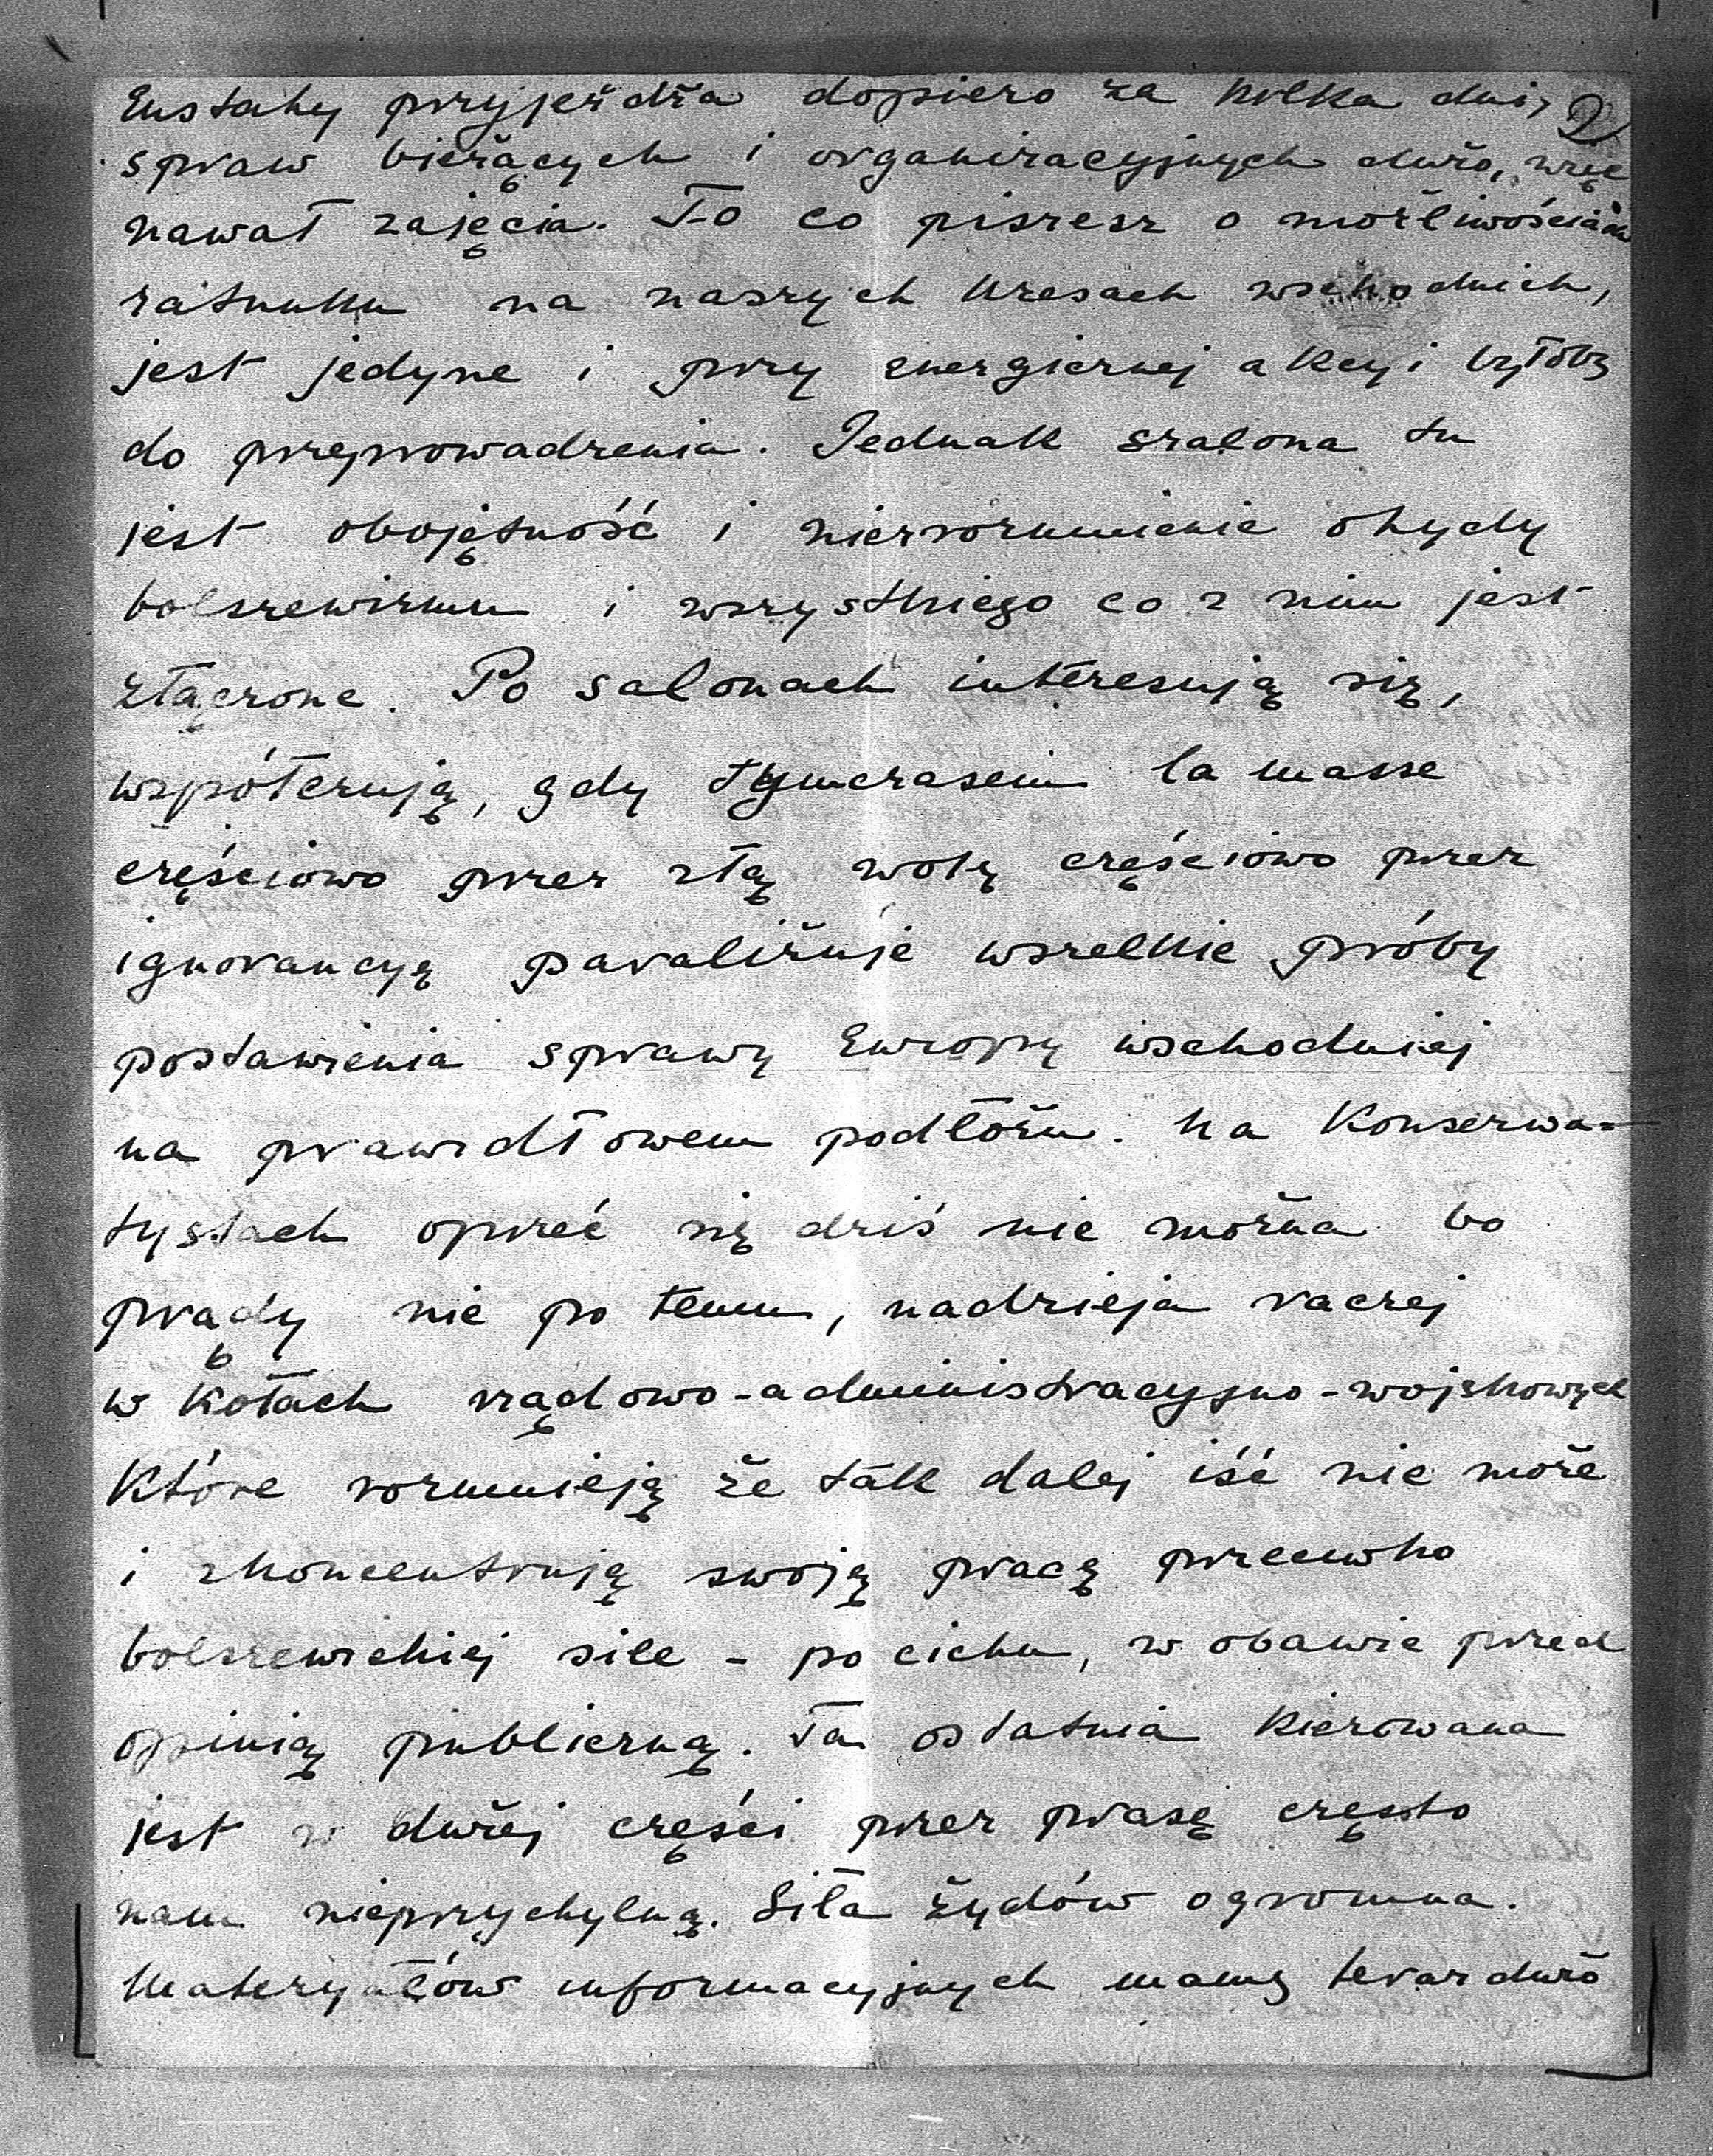 Eustahy przyjeżdża dopiero za kilka dni, 2
spraw bieżących i organizacyjnych dużo, więc
nawał zajęcia. To co piszesz o możliwościach
ratunku na naszych kresach wschodnich,
jest jedyne i przy energicznej akcyi byłoby
do przeprowadzenia. Jednak szalona tu
jest obojętność i niezrozumienie ohydy
bolszewizmu i wszystkiego co z nim jest
złączone. Po salonach interesują się,
współczują, gdy tymczasem la masse
częściowo przez złą wolę częściowo przez
ignorancyę paraliżuje wszelkie próby
postawienia sprawy Europy wschodniej
na prawidłowem podłożu. Na Konserwa=
tystach oprzeć się dziś nie można bo
prądy nie po temu, nadzieja raczej
w kołach rządowo-administracyjno-wojskowych
które rozumieją że tak dalej iść nie może
i skoncentrują swoją pracę przeciwko
bolszewickiej sile - po cichu, w obawie przed
opinią publiczną. Ta ostatnia kierowana
jest w dużej części przez prasę często
nam nieprzychylną. Siła żydów ogromna.
Materyałów informacyjnych mamy teraz dużo